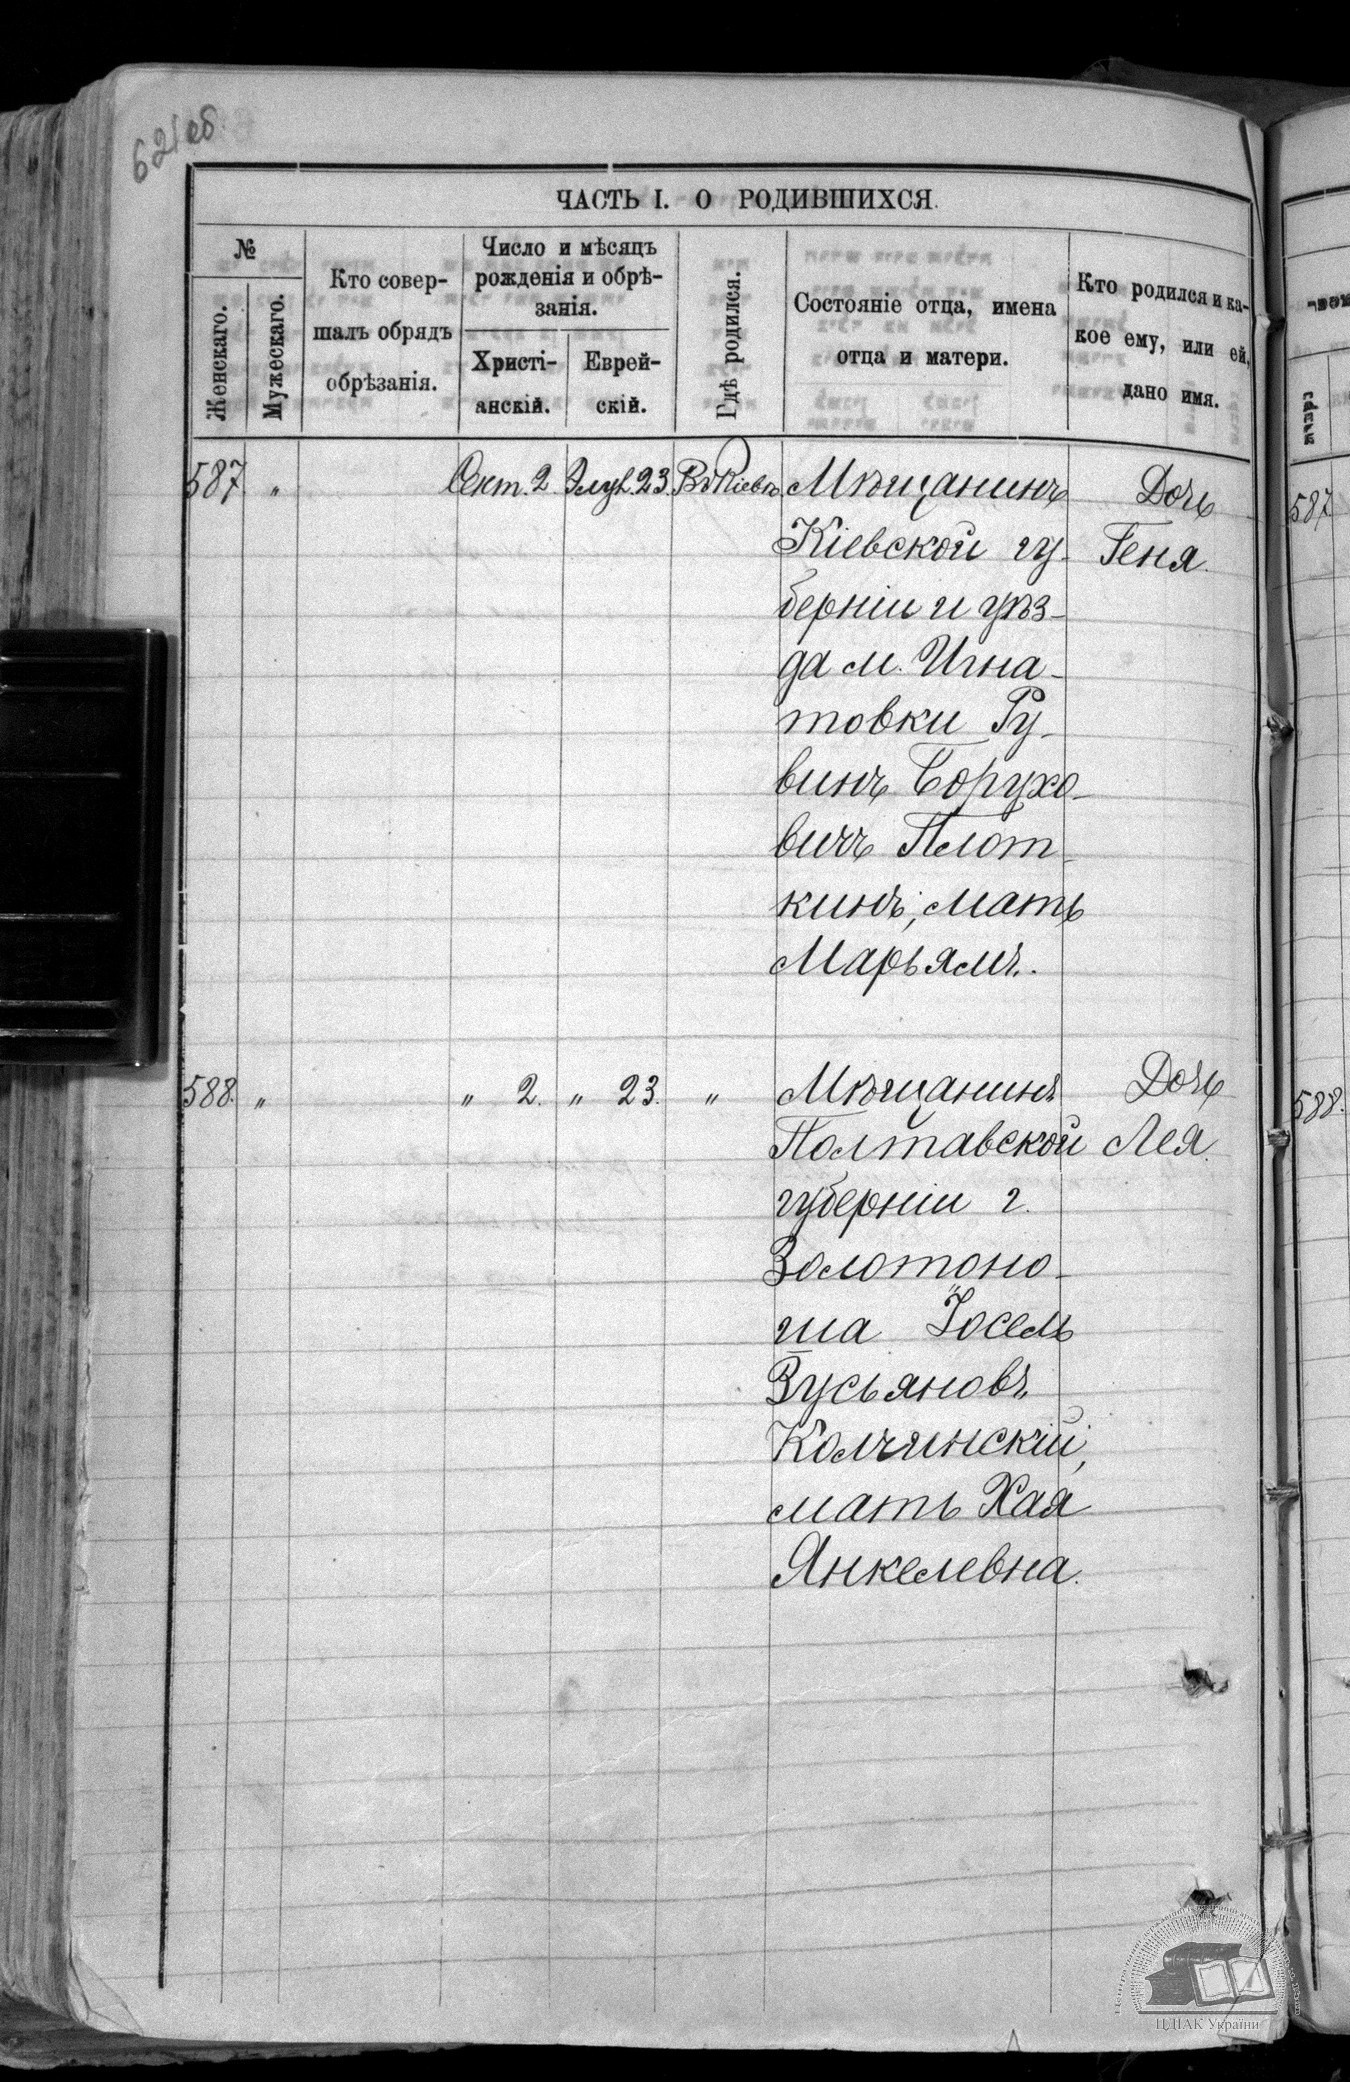 621об
ЧАСТЬ I. О РОДИВШИХСЯ.
№
Женскаго.
Мужескаго.
Кто совер-
шалъ обрядъ
обрѣзанія.
Число и мѣсяцъ
рожденія и обрѣ-
занія.
Христі-
анскій.
Еврей-
скій.
Гдѣ родился.
Состояніе отца, имена
отца и матери.
Кто родился и ка-
кое ему, или ей,
дано имя.
587 „ Сент. 2 Элул. 23. Въ Кіевѣ Мѣщанинъ Дочь
Кіевской гу- Геня.
берніи и уѣз-
да м. Игна-
товки Ру-
винъ Борухо-
вичъ Плот-
кинъ, мать
Марьямъ.
588. „ „ 2. „ 23. „ Мѣщанинъ Дочь
Полтавской Лея.
губерніи г.
Золотоно-
ша Іосель
Зусьяновъ
Колчинскій,
мать Хая
Янкелевна.
587
588.
ЦДІАК України